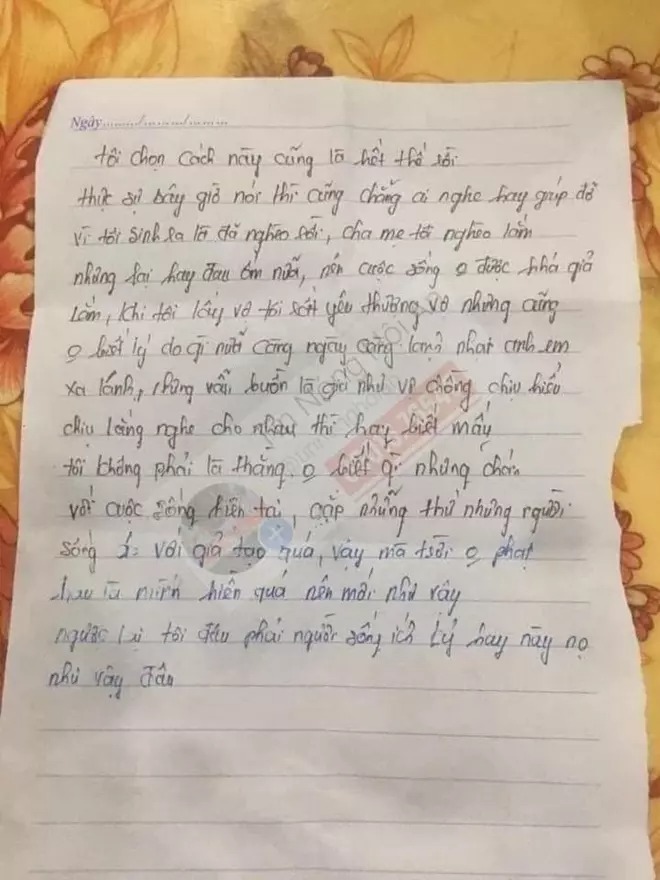 Ngày......./......../........
tôi chọn cách này cũng là hết thể rồi
thực sự bây giờ nói thì cũng chẳng ai nghe hay giúp đỡ
vì tôi sinh ra là đã nghèo rồi, cha mẹ tôi nghèo lắm
nhưng lại hay đau ốm nữa, nên cuộc sống o được khá giả
lắm, khi tôi lấy vợ tôi rất yêu thương vợ nhưng cũng
o biết lý do gì nữa càng ngày càng lạnh nhạt anh em
xa lánh, nhưng vẫn buồn là giá như vợ chồng chịu hiểu
chịu lắng nghe cho nhau thì hay biết mấy
tôi không phải là thằng o biết gì nhưng chán
với cuộc sống hiện tại, gặp những thứ những người
sống với giả tạo quá, vậy mà trời o phạt
mình hiền quá nên mới như vậy
ngược lại tôi đâu phải người sống ích kỷ hay này nọ
như vậy đâu